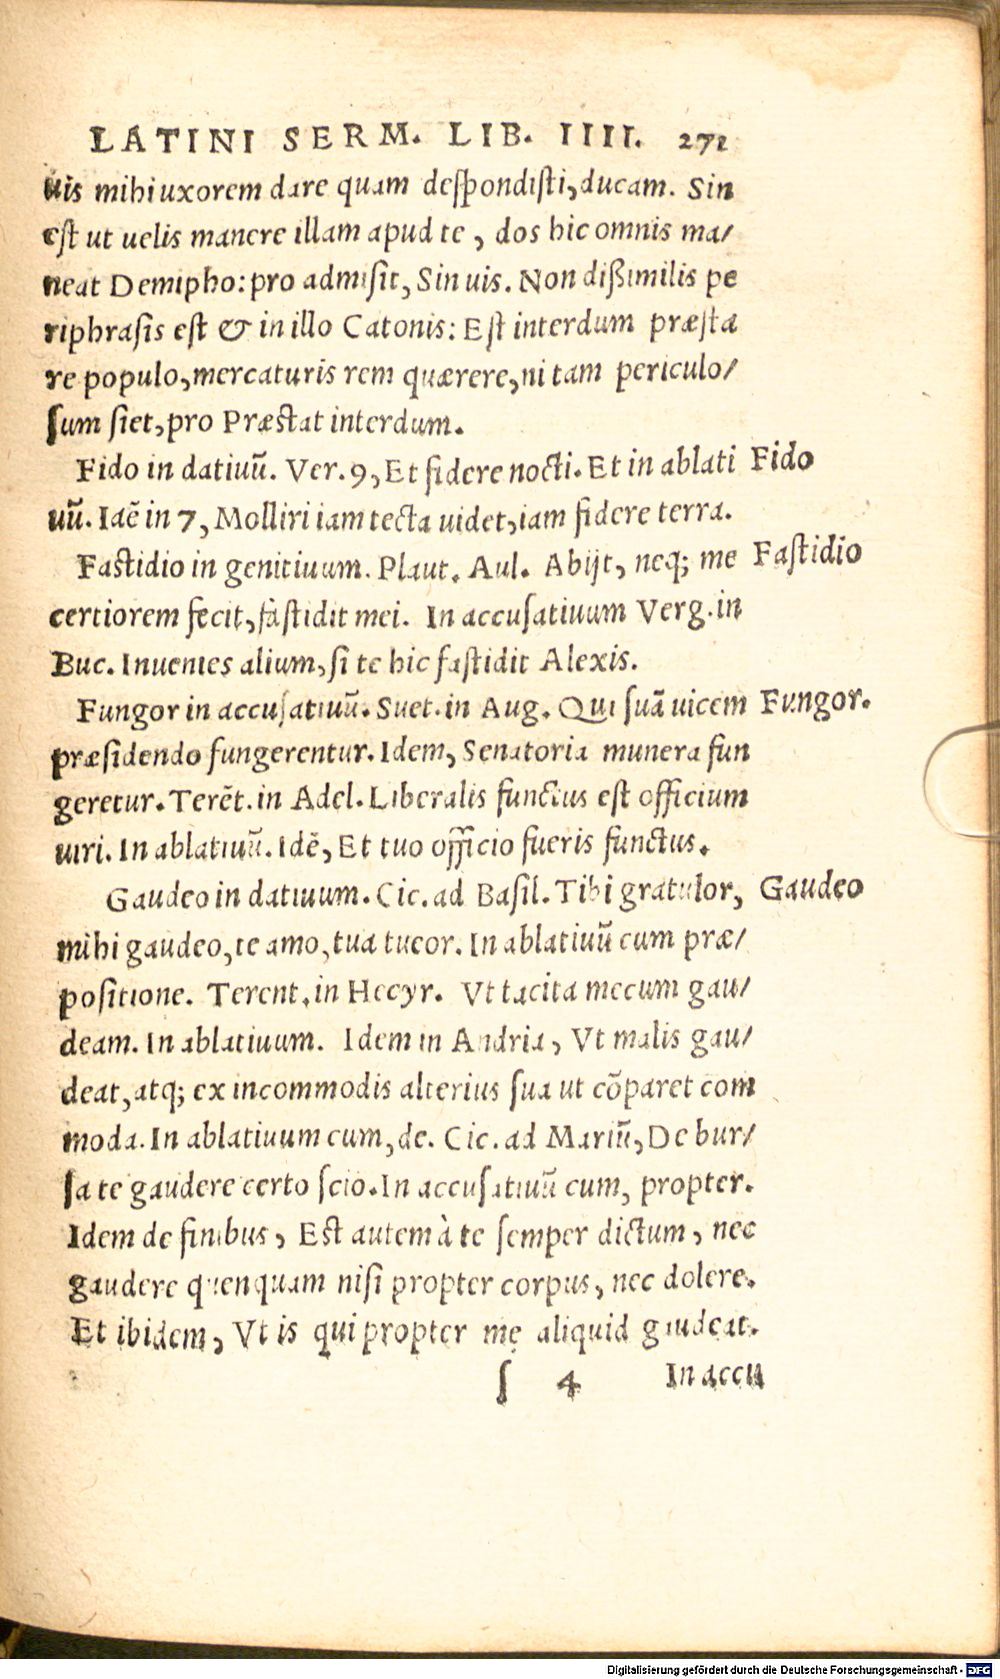 LATINI SERM. LIB. IIII. 271
uis mihi uxorem dare quam despondisti, ducam. Sin
est ut uelis manere illam apud te, dos hic omnis ma/
neat Demipho: pro admisit, Sin uis. Non dißimilis pe
riphrasis est & in illo Catonis: Est interdum præsta
re populo, mercaturis rem quærere, ni tam periculo/
sum siet, pro Præstat interdum.
Fido in datiuū. Ver. 9, Et fidere nocti. Et in ablati Fido
uū. Iaē in 7, Molliri iam tecta uidet, iam fidere terra.
Fastidio in genitiuum. Plaut. Aul. Abijt, neq; me Fastidio
certiorem fecit, fastidit mei. In accusatiuum Verg. in
Buc. Inuenies alium, si te hic fastidit Alexis.
Fungor in accusatiuū. Suet. in Aug. Qui suā uicem Fungor.
præsidendo fungerentur. Idem, Senatoria munera fun
geretur. Terēt. in Adel. Liberalis functus est officium
uiri. In ablatiuū. Idē, Et tuo officio fueris functus.
Gaudeo in datiuum. Cic. ad Basil. Tibi gratulor, Gaudeo
mihi gaudeo, te amo, tua tueor. In ablatiuū cum præ/
positione. Terent. in Hecyr. Vt tacita mecum gau/
deam. In ablatiuum. Idem in Andria, Vt malis gau/
deat, atq; ex incommodis alterius sua ut cōparet com
moda. In ablatiuum cum, de. Cic. ad Mariū, De bur/
sa te gaudere certo scio. In accusatiuū cum, propter.
Idem de finibus, Est autem à te semper dictum, nec
gaudere quenquam nisi propter corpus, nec dolere.
Et ibidem, Vt is qui propter me aliquid gaudeat.
ſ 4 In accu
Digitalisierung gefördert durch die Deutsche Forschungsgemeinschaft - DFG